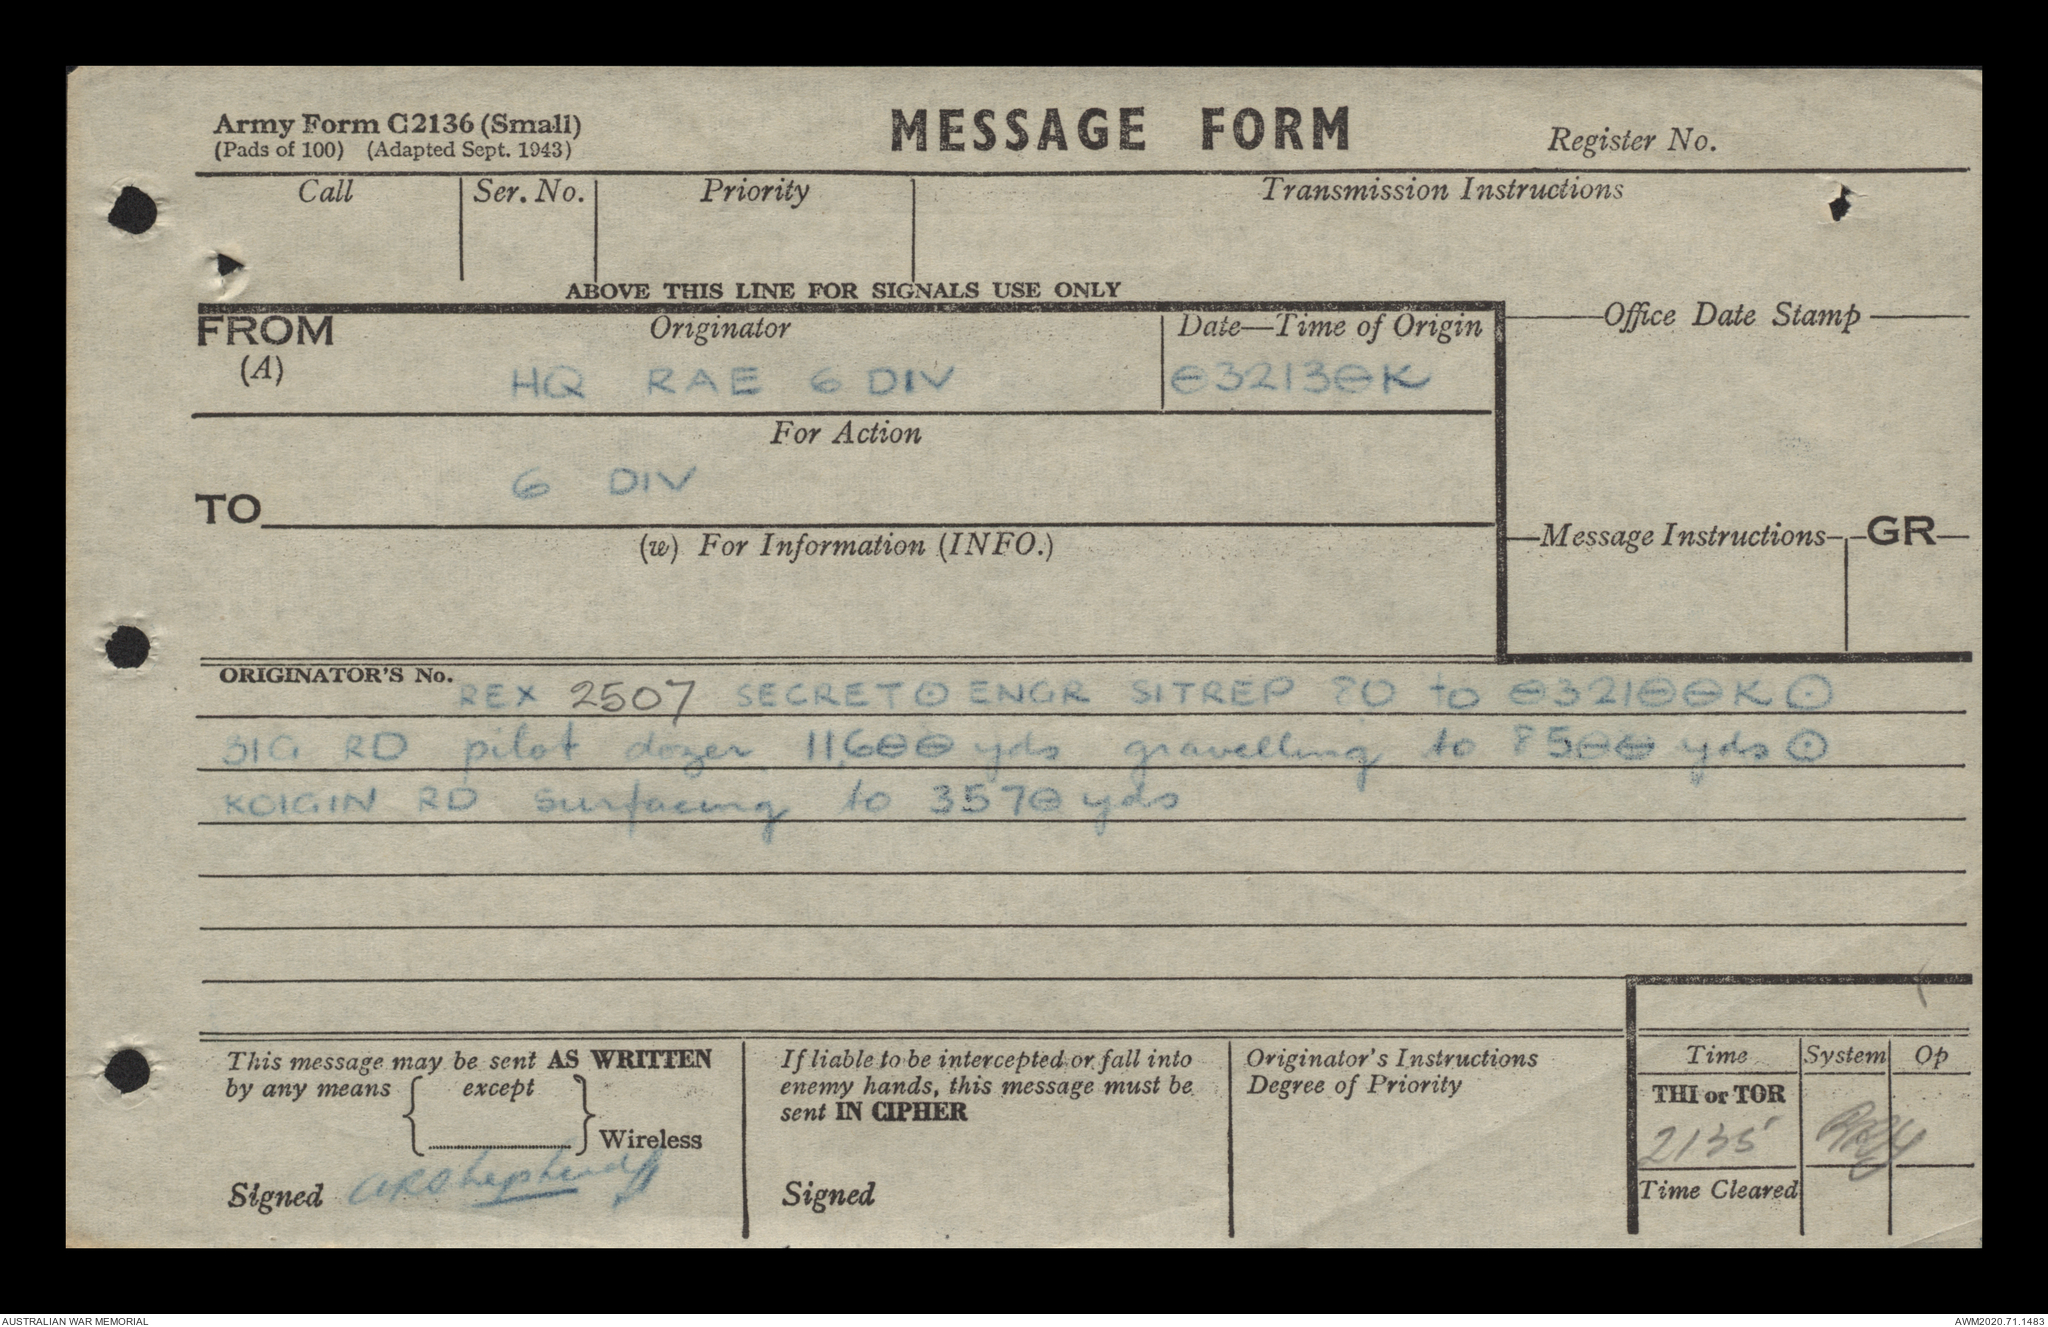 Army Form C2136 (Small)
(Pads of 100) (Adapted Sept. 1943)
MESSAGE FORM
Register No.
Call
Ser. No.
Priority
Transmission Instructions
ABOVE THIS LINE FOR SIGNALS USE ONLY
FROM
(A)
Originator
HQ RAE 6 DIV
Date—Time of Origin
032130K
Office Date Stamp
For Action
TO
6 DIV
(w) For Information (INFO.)
Message Instructions
GR
ORIGINATOR'S No.
REX 2507 SECRET ⊙ ENGR SITREP 80 to 032100K ⊙
RD pilot dozer 11,600 yds gravelling to 8500 yds ⊙
KOIGIN RD surfacing to 3570 yds
This message may be sent AS WRITTEN
by any means { except } Wireless
Signed ARShepherd
If liable to be intercepted or fall into
enemy hands, this message must be
sent IN CIPHER
Signed
Originator's Instructions
Degree of Priority
Time
System
Op
THI or TOR
2135
Time Cleared
AUSTRALIAN WAR MEMORIAL
AWM2020.71.1483